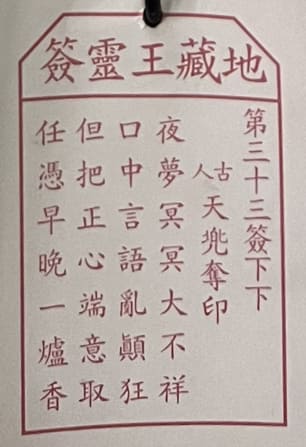 地藏王靈簽
第三十三簽下下
古人
天兠奪印
夜夢冥冥大不祥
口中言語亂顚狂
但把正心端意取
任憑早晚一爐香